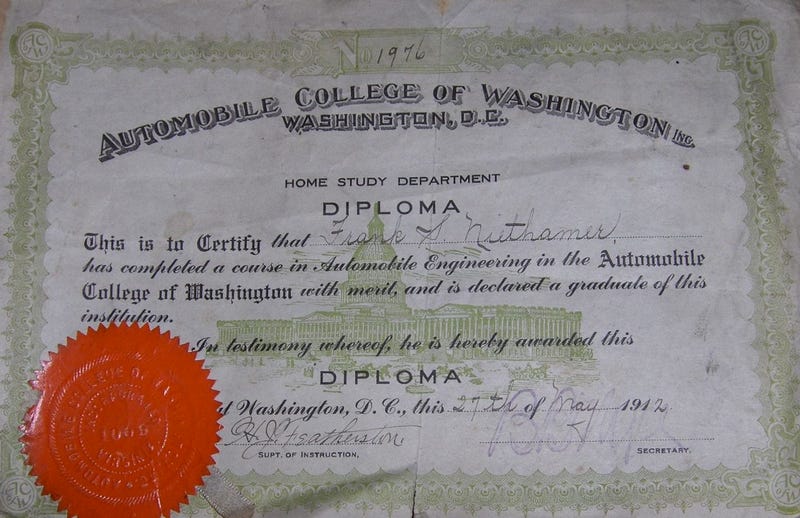 No 1976
AUTOMOBILE COLLEGE OF WASHINGTON INC.
WASHINGTON, D.C.,
HOME STUDY DEPARTMENT
DIPLOMA
This is to Certify that Frank S. Niethamer,
has completed a course in Automobile Engineering in the Automobile
College of Washington with merit, and is declared a graduate of this
institution.
In testimony whereof, he is hereby awarded this
DIPLOMA
Washington, D. C., this 27th of May 1912
H. J. Featherston
SUPT. OF INSTRUCTION,
SECRETARY.
AUTOMOBILE COLLEGE O